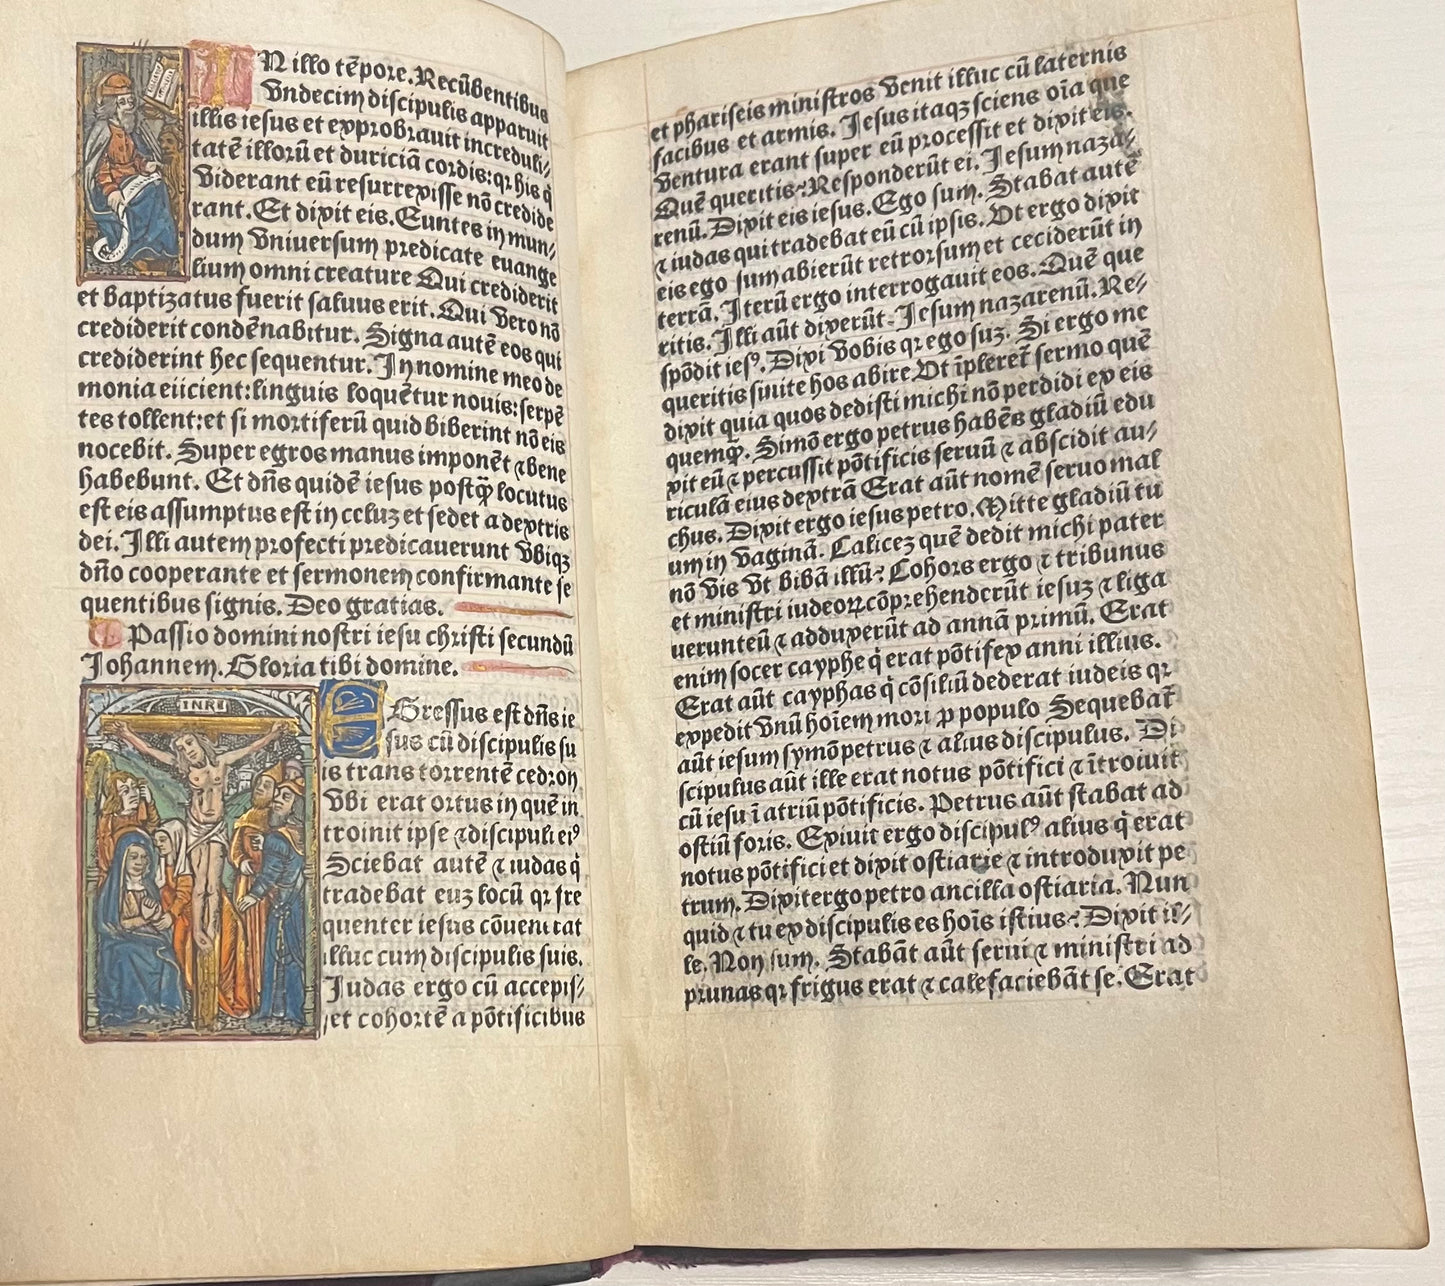 IN illo tēpore. Recūbentibus
vndecim discipulis apparuit
illis iesus et exprobrauit increduli⸗
tatē illorū et duriciā cordis: qꝛ his q̄
viderant eū resurrexisse nō credide
rant. Et dixit eis. Euntes in mun⸗
dum vniuersum predicate euange
lium omni creature Qui crediderit
et baptizatus fuerit saluus erit. Qui vero nō
crediderit condēnabitur. Signa autē eos qui
crediderint hec sequentur. In nomine meo de
monia eiicient: linguis loquētur nouis: serpē
tes tollent: et si mortiferū quid biberint nō eis
nocebit. Super egros manus imponēt ⁊ bene
habebunt. Et dn̄s quidē iesus postq̄ locutus
est eis assumptus est in celuꝫ et sedet a dextris
dei. Illi autem profecti predicauerunt vbiqꝫ
dn̄o cooperante et sermonem confirmante se
quentibus signis. Deo gratias.
Passio domini nostri iesu christi secundū
Johannem. Gloria tibi domine.
INRI
EGressus est dn̄s ie
sus cū discipulis su
is trans torrentē cedron
vbi erat ortus in quē in
troiuit ipse ⁊ discipuli eiꝰ
Sciebat autē ⁊ iudas q̄
tradebat euꝫ locū qꝛ fre
quenter iesus cōuenerat
illuc cum discipulis suis.
Judas ergo cū accepis⸗
set cohortē a pōtificibus
et phariseis ministros venit illuc cū laternis
facibus et armis. Jesus itaqꝫ sciens oīa que
ventura erant super eū processit et dixit eis.
Quē queritis? Responderūt ei. Jesum naza⸗
renū. Dixit eis iesus. Ego sum. Stabat autē
⁊ iudas qui tradebat eū cū ipsis. Ut ergo dixit
eis ego sum abierūt retrorsum et ceciderūt in
terrā. Iterū ergo interrogauit eos. Quē que
ritis. Illi aūt dixerūt. Jesum nazarenū. Re⸗
spōdit iesꝰ. Dixi vobis qꝛ ego suꝫ. Si ergo me
queritis sinite hos abire. Ut īpleret̄ sermo quē
dixit quia quos dedisti michi nō perdidi ex eis
quemq̄. Simō ergo petrus habēs gladiū edu
xit eū ⁊ percussit pōtificis seruū ⁊ abscidit au⸗
riculā eius dextrā Erat aūt nomē seruo mal
chus. Dixit ergo iesus petro. Mitte gladiū tu
um in vaginā. Calicez quē dedit michi pater
nō vis vt bibā illū? Cohors ergo ⁊ tribunus
et ministri iudeoꝝ cōprehenderūt iesuꝫ ⁊ liga
uerunt eū ⁊ adduxerūt ad annā primū. Erat
enim socer cayphe q̄ erat pōtifex anni illius.
Erat aūt cayphas q̄ cōsiliū dederat iudeis qꝛ
expedit vnū hoīem mori ꝓ populo Sequebat̄
aūt iesum symō petrus ⁊ alius discipulus. Di
scipulus aūt ille erat notus pōtifici ⁊ ītroiuit
cū iesu ī atriū pōtificis. Petrus aūt stabat ad
ostiū foris. Exiuit ergo discipulꝰ alius q̄ erat
notus pōtifici et dixit ostiarie ⁊ introduxit pe
trum. Dixit ergo petro ancilla ostiaria. Nun
quid ⁊ tu ex discipulis es hoīs istius? Dixit il⸗
le. Non sum. Stabāt aūt serui ⁊ ministri ad
prunas qꝛ frigus erat ⁊ calefaciebāt se. Erat